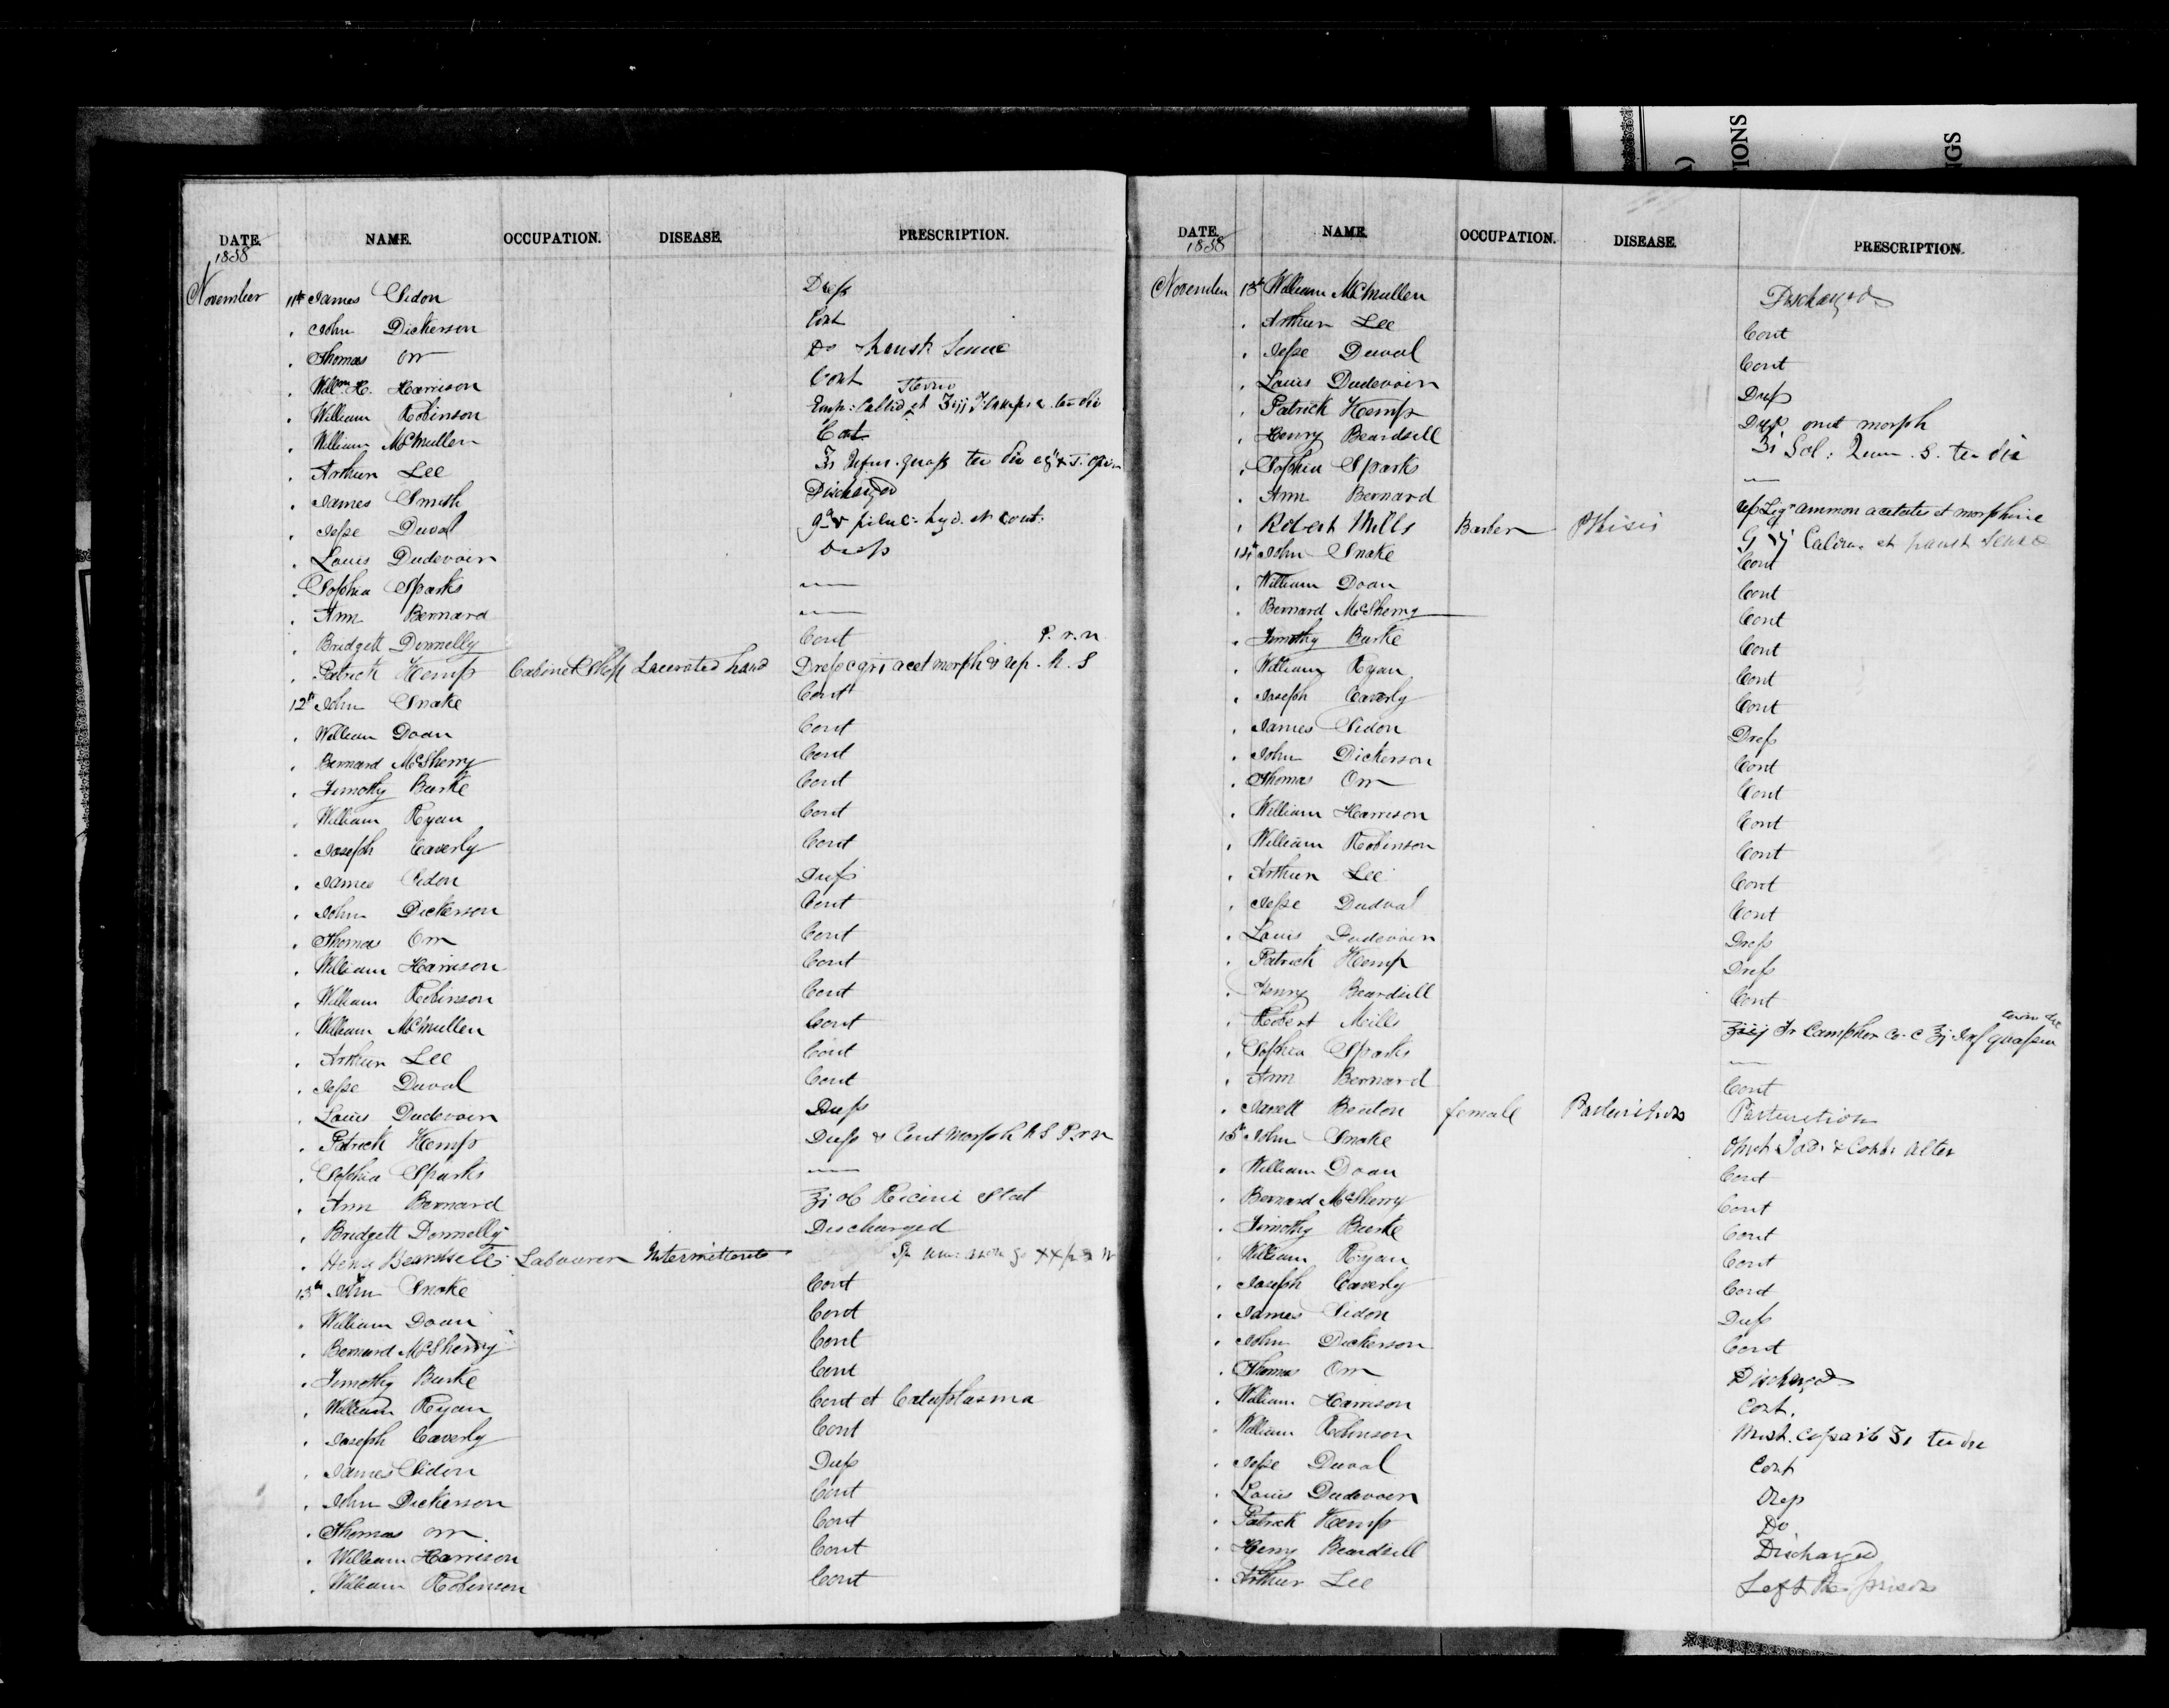 IONS
GS
DATE. NAME. OCCUPATION. DISEASE. PRESCRIPTION.
1858
November 11th James Sidon Dress
" John Dickerson Cont
" Thomas Orr Do haust Sennae
" Willm H. Harrison Cont
" William Robinson
" William McMullen Cont
" Arthur Lee
" James Smith Discharged
" Jesse Duval hyd. et cont.
" Louis Dudevoir Dress
" Sophia Sparks —
" Ann Bernard —
" Bridgett Donnelly Cont P.r.n
" Patrick Hemp Cabinet Shop Lacerated hand Dress c gr i acet morph & rep. h. s
12th John Snake Cont
" William Doan Cont
" Bernard McSherry Cont
" Timothy Burke Cont
" William Ryan Cont
" Joseph Caverly Cont
" James Sidon Dress
" John Dickerson Cont
" Thomas Orr Cont
" William Harrison Cont
" William Robinson Cont
" William McMullen Cont
" Arthur Lee Cont
" Jesse Duval Cont
" Louis Dudevoir Dress
" Patrick Hemp Dress & Cont Morph h S P.r.n
" Sophia Sparks —
" Ann Bernard ʒj ol Ricini Stat
" Bridgett Donnelly Discharged
" Henry Beardsell Labourer Intermittents
13th John Snake Cont
" William Doan Cont
" Bernard McSherry Cont
" Timothy Burke Cont
" William Ryan Cont et Cataplasma
" Joseph Caverly Cont
" James Sidon Dress
" John Dickerson Cont
" Thomas Orr Cont
" William Harrison Cont
" William Robinson Cont
DATE. NAME. OCCUPATION. DISEASE. PRESCRIPTION.
1858
November 13th William McMullen Discharged
" Arthur Lee Cont
" Jesse Duval Cont
" Louis Dudevoir Dress
" Patrick Hemp Dress omit morph
" Henry Beardsell ʒi Sol: Quin. S. ter die
" Sophia Sparks —
" Ann Bernard
" Robert Mills Barber Phisis Liqr ammon acetatis et morphine
14th John Snake Cont
" William Doan Cont
" Bernard McSherry Cont
" Timothy Burke Cont
" William Ryan Cont
" Joseph Caverly Cont
" James Sidon Dress
" John Dickerson Cont
" Thomas Orr Cont
" William Harrison Cont
" William Robinson Cont
" Arthur Lee Cont
" Jesse Dudval Cont
" Louis Dudevoir Dress
" Patrick Hemp Dress
" Henry Beardsell Cont
" Robert Mills ʒiij Tr Camphor Co. c ʒj Inf quassia
" Sophia Sparks —
" Ann Bernard Cont
" Janett Benton female Parturition Parturition
15th John Snake
" William Doan Cont
" Bernard McSherry Cont
" Timothy Burke Cont
" William Ryan Cont
" Joseph Caverly Cont
" James Sidon Dress
" John Dickerson Cont
" Thomas Orr Discharged
" William Harrison Cont.
" William Robinson Mist. Copaib ʒi ter die
" Jesse Duval Cont
" Louis Dudevoir Dress
" Patrick Hemp Do
" Henry Beardsell Discharged
" Arthur Lee Left the prison